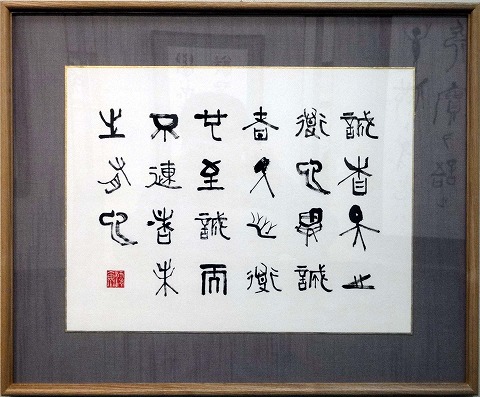 誠者天之
道也思誠
者人之道
也至誠而
不動者未
之有也